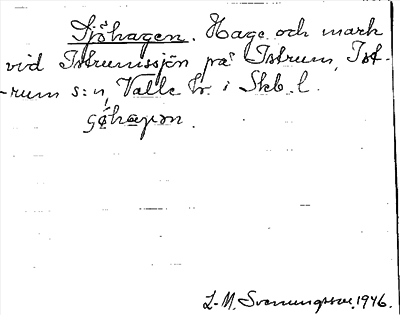 Sjöhagen. Hage och mark
vid Istrumssjön på Istrum, Ist-
-rum s:n, Valle hr. i Skb. l.
L-M. Svenungsson. 1946.